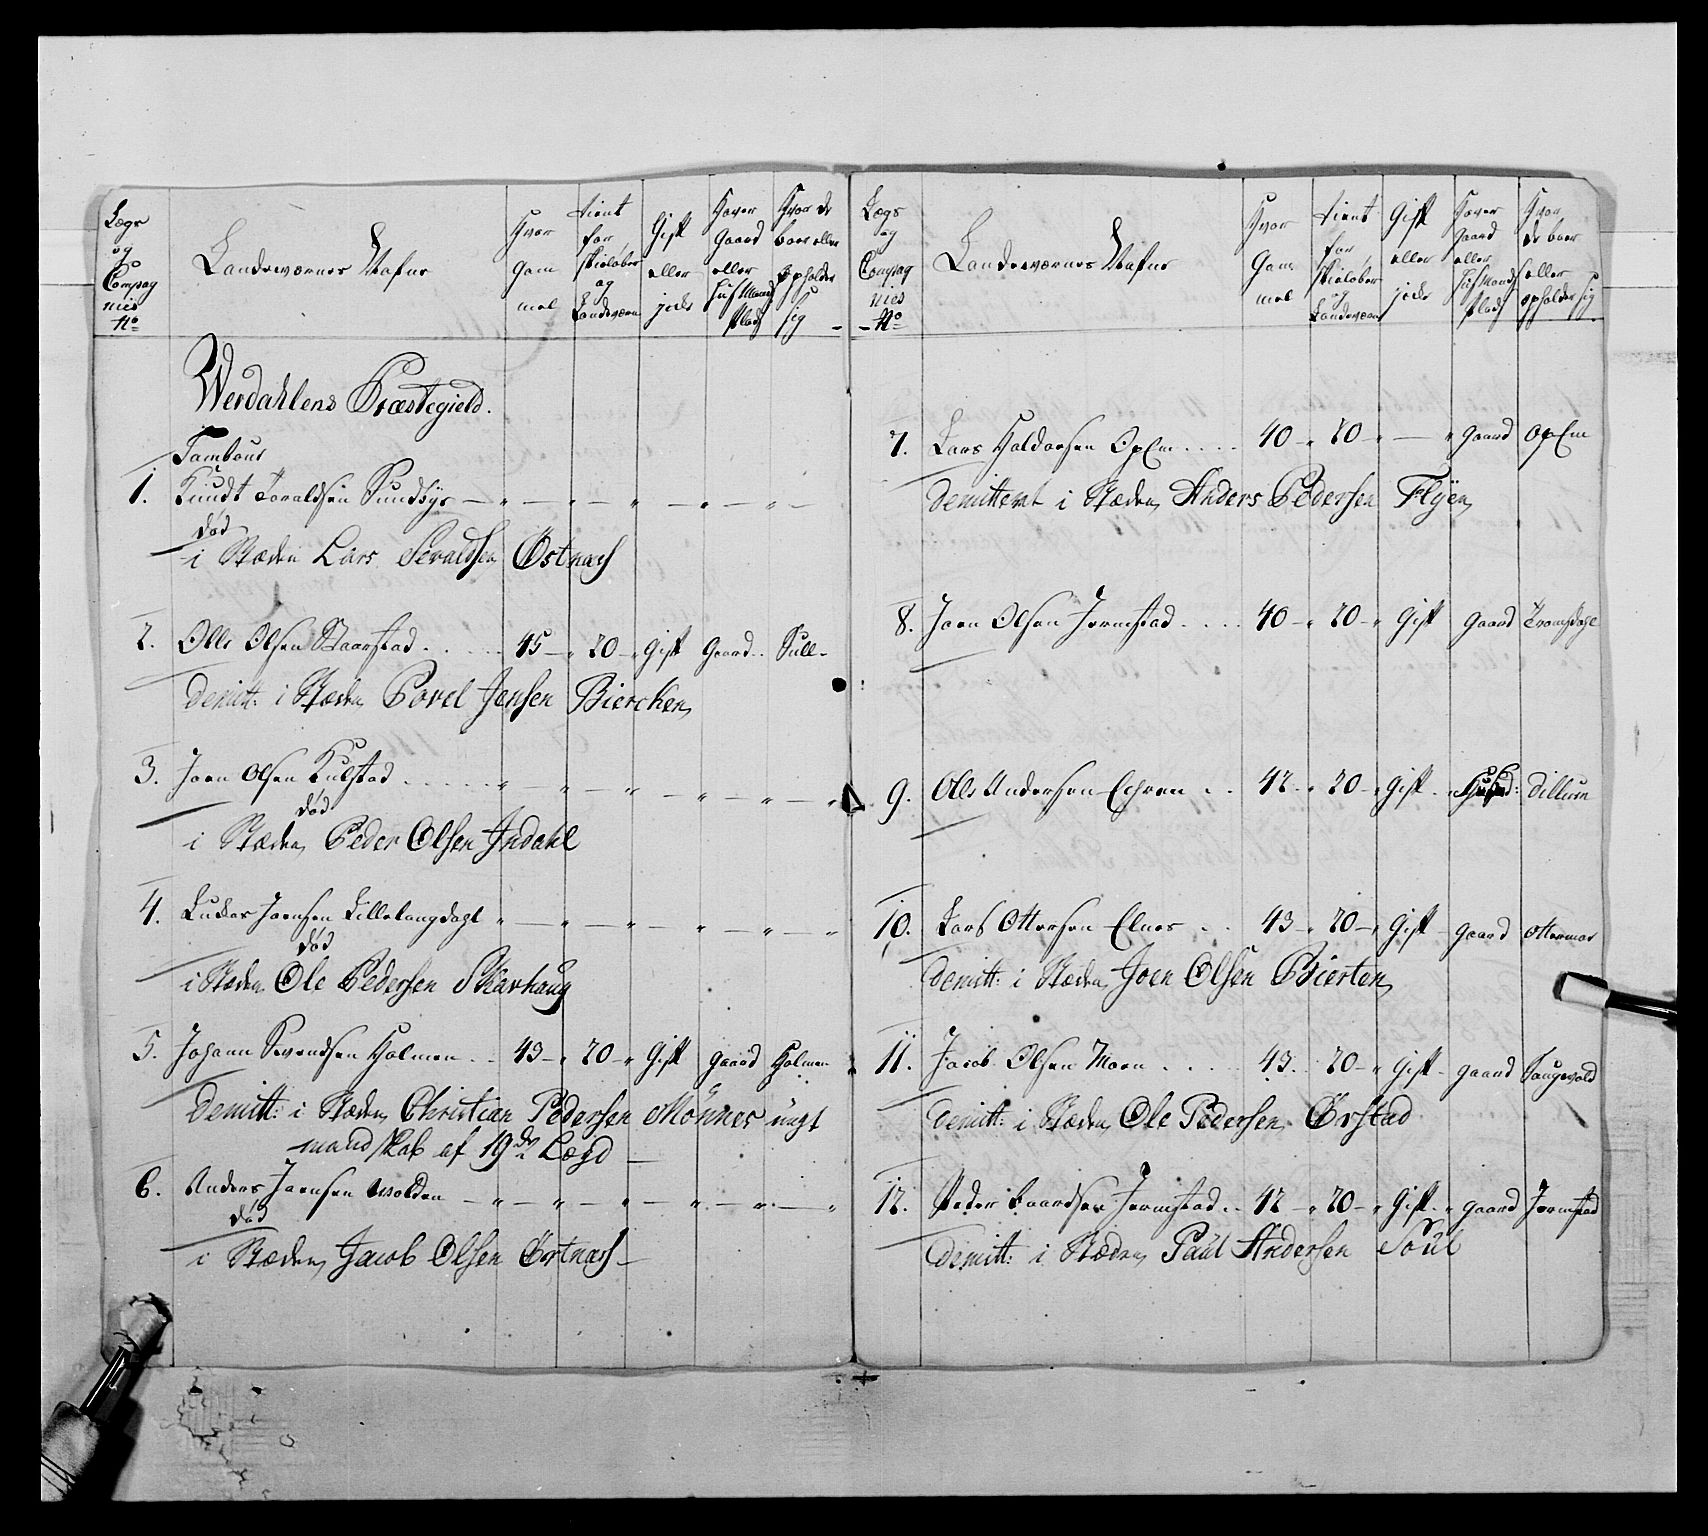 Lægs og Compagnies No
Landeværnes Nafne
Hvor Gammel
tient for Skieløber og Landeværn
Gift eller jede
Haver Gaard eller Huusmands Plads
Hvor de boer eller opholder sig
Werdahlens Præstegield.
Tambour
1. Knudt Toraldsen Sundbye — " — " — " — " — " —
død
i Stæden Lars Sevaldsen Østnæs
2. Olle Olsen Staarstad . . . 45 — " 20 — " Gift Gaard . . Sull -
Demitt: i Stæden Povel Jensen Biercken
3. Joen Olsen Kulstad . . . . . " — " — " — " — " — "
død
i Stæden Peder Olsen Indahl
4. Ludvig Joensen Lillelangdahl " — " — " — " — " — "
død
i Stæden Ole Pedersen Skavhaug
5. Johann Svendsen Holmen . . 43 — " 20 — " Gift gaard Holmen
Demitt: i Stæden Christian Pedersen Mönnes ungt
mandskab af 19de Lægd —
6. Anders Joensen Wolden — " — " — " — " — " — "
død
i Stæden Jacob Olsen Østnæs —
Lægs og Compagnies No
Landeværnes Nafne
Hvor Gammel
tient for Skieløber og Landeværn
Gift eller jede
Haver Gaard eller Huusmands Plads
Hvor de boer eller opholder sig
7. Lars Haldorsen OpEm . . . . 40 — " 20 — " — " gaard OpEm
Demitteret i Stæden Anders Pedersen Flyen
8. Joen Olsen Jermstad . . . . 40 — " 20 — " Gift gaard Tromsdahl
9. Olle Andersen Echren . . 42 — " 20 — " Gift — " Dillum
10. Lars Ottersen Elnes . . 43 — " 20 — " Gift — gaard Ottermoe
Demitt: i Stæden Joen Olsen Bierken
11. Jacob Olsen Moen . . . . 43 . 20 — " Gift — gaard Haugvold
Demitt: i Stæden Ole Pedersen Ørstad
12. Peder Baardsen Jermstad . . 42 — " 20 — " Gift — " gaard Jermstad
Demitt: i Stæden Paul Andersen Soul